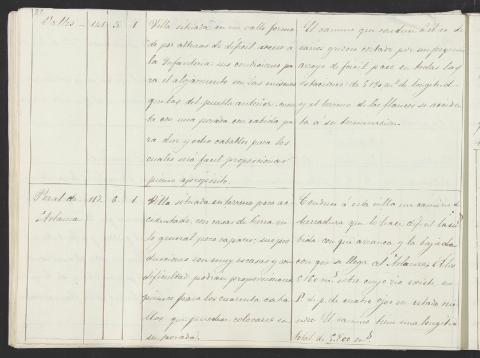 Valles - 141 5. 1 Villa situada en un valle formado
de por alturas de dificil acceso á
la Infanteria: sus condiciones pa
ra el alojamiento son las mismas
que las del pueblo anterior; cuen
ta con una posada con cabida pa
ra diez y ocho caballos para los
cuales será facil proporcionar
pienso aproposito.
El camino que conduce á él es de
carros y viene cortado por un pequeño
arroyo de facil paso en todas las
estaciones: de 5190 m.s de longitud
y el terreno de los flancos se acciden
ta á su terminacion.
Peral de
Arlanza
117. 6. 1. Villa situada en terreno poco ac
cidentado, con casas de tierra en
lo general poco capaces; sus pro
ducciones son muy escasas y con
dificultad podrian proporcionarse
piensos para los cuarenta caba
llos que pueden colocarse en
su posada.
Conduce á esta villa un camino de
herradura que le hace dificil la su
bida con que arranca y la bajada
con que se llega al Arlanza; á los
m.s sobre cuyo rio existe un
P. de p. de cuatro ojos en estado rui
noso. El camino tiene una longitud
total de m.s